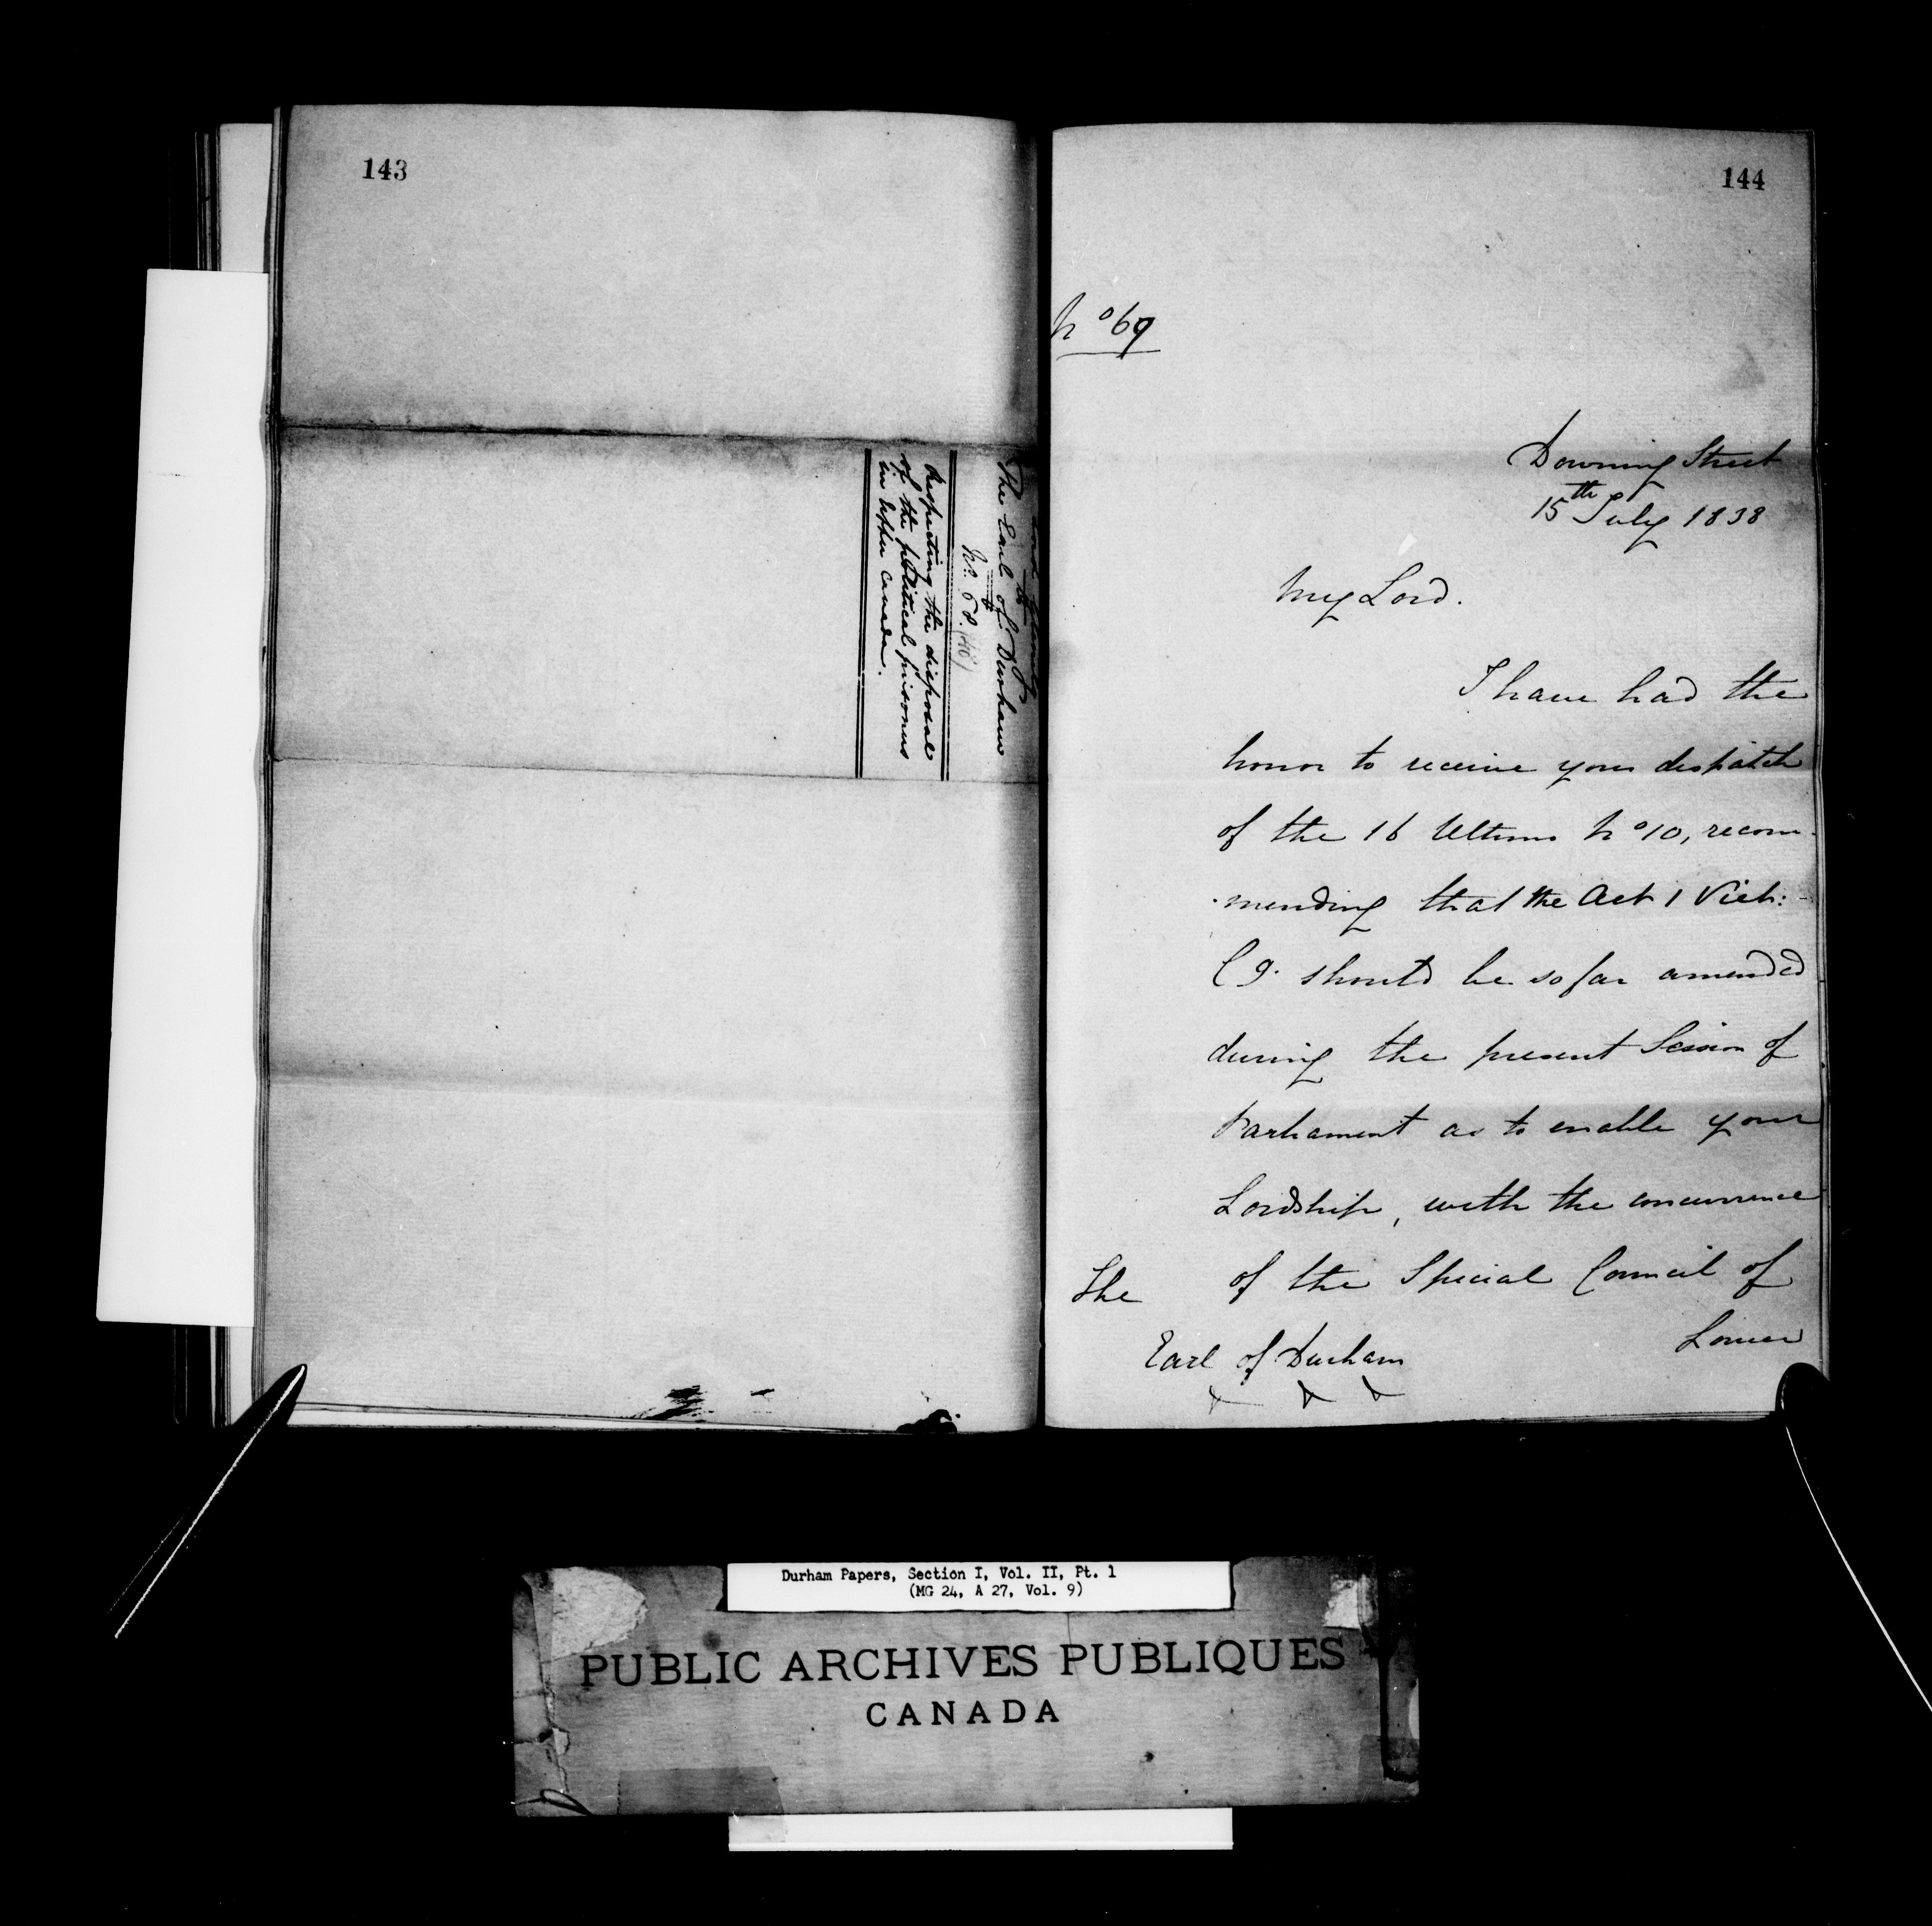 143
Lord Glenelg
to
The Earl of Durham
No. 68.
Respecting the disposal
of the political prisoners
in Upper Canada.
144
No 69
Downing Street
15th July 1838
My Lord.
I have had the
honor to receive your dispatch
of the 16 Ultimo No 10, recom-
-mending that the Act 1 Vict:
C 9. should be so far amended
during the present Session of
Parliament as to enable your
Lordship, with the concurrence
of the Special Council of
Lower
The
Earl of Durham
& & &
Durham Papers, Section I, Vol. II, Pt. 1
(MG 24, A 27, Vol. 9)
PUBLIC ARCHIVES PUBLIQUES
CANADA